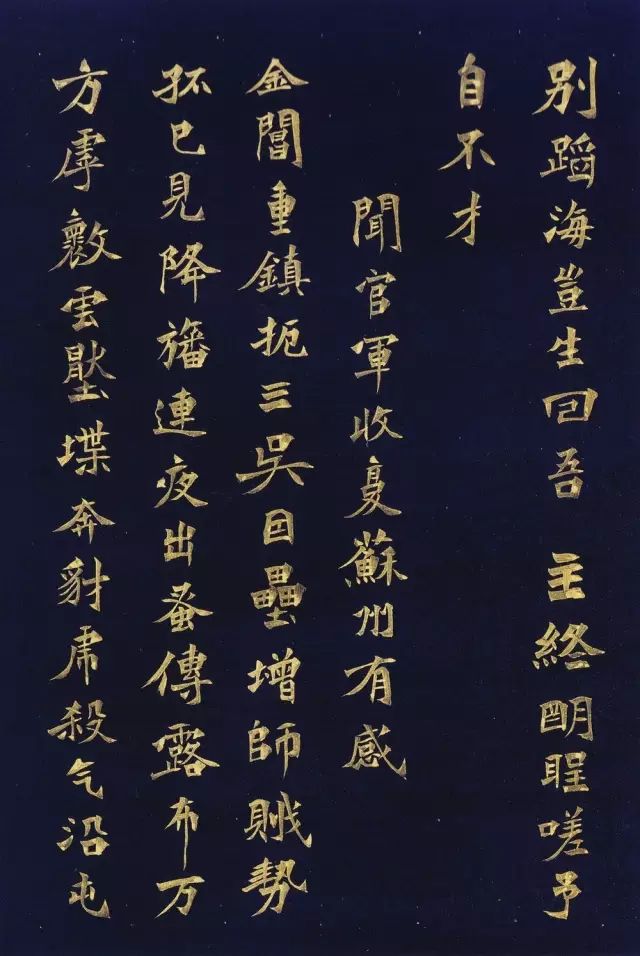 别蹈海豈生回吾 主終朙聖嗟予
自不才
聞官軍收复蘇州有感
金閶重鎮扼三吳因壘增師賊勢
孤已見降旛連夜出蚤傳露布万
方虖敶雲壓堞奔豺虎殺气沿屯